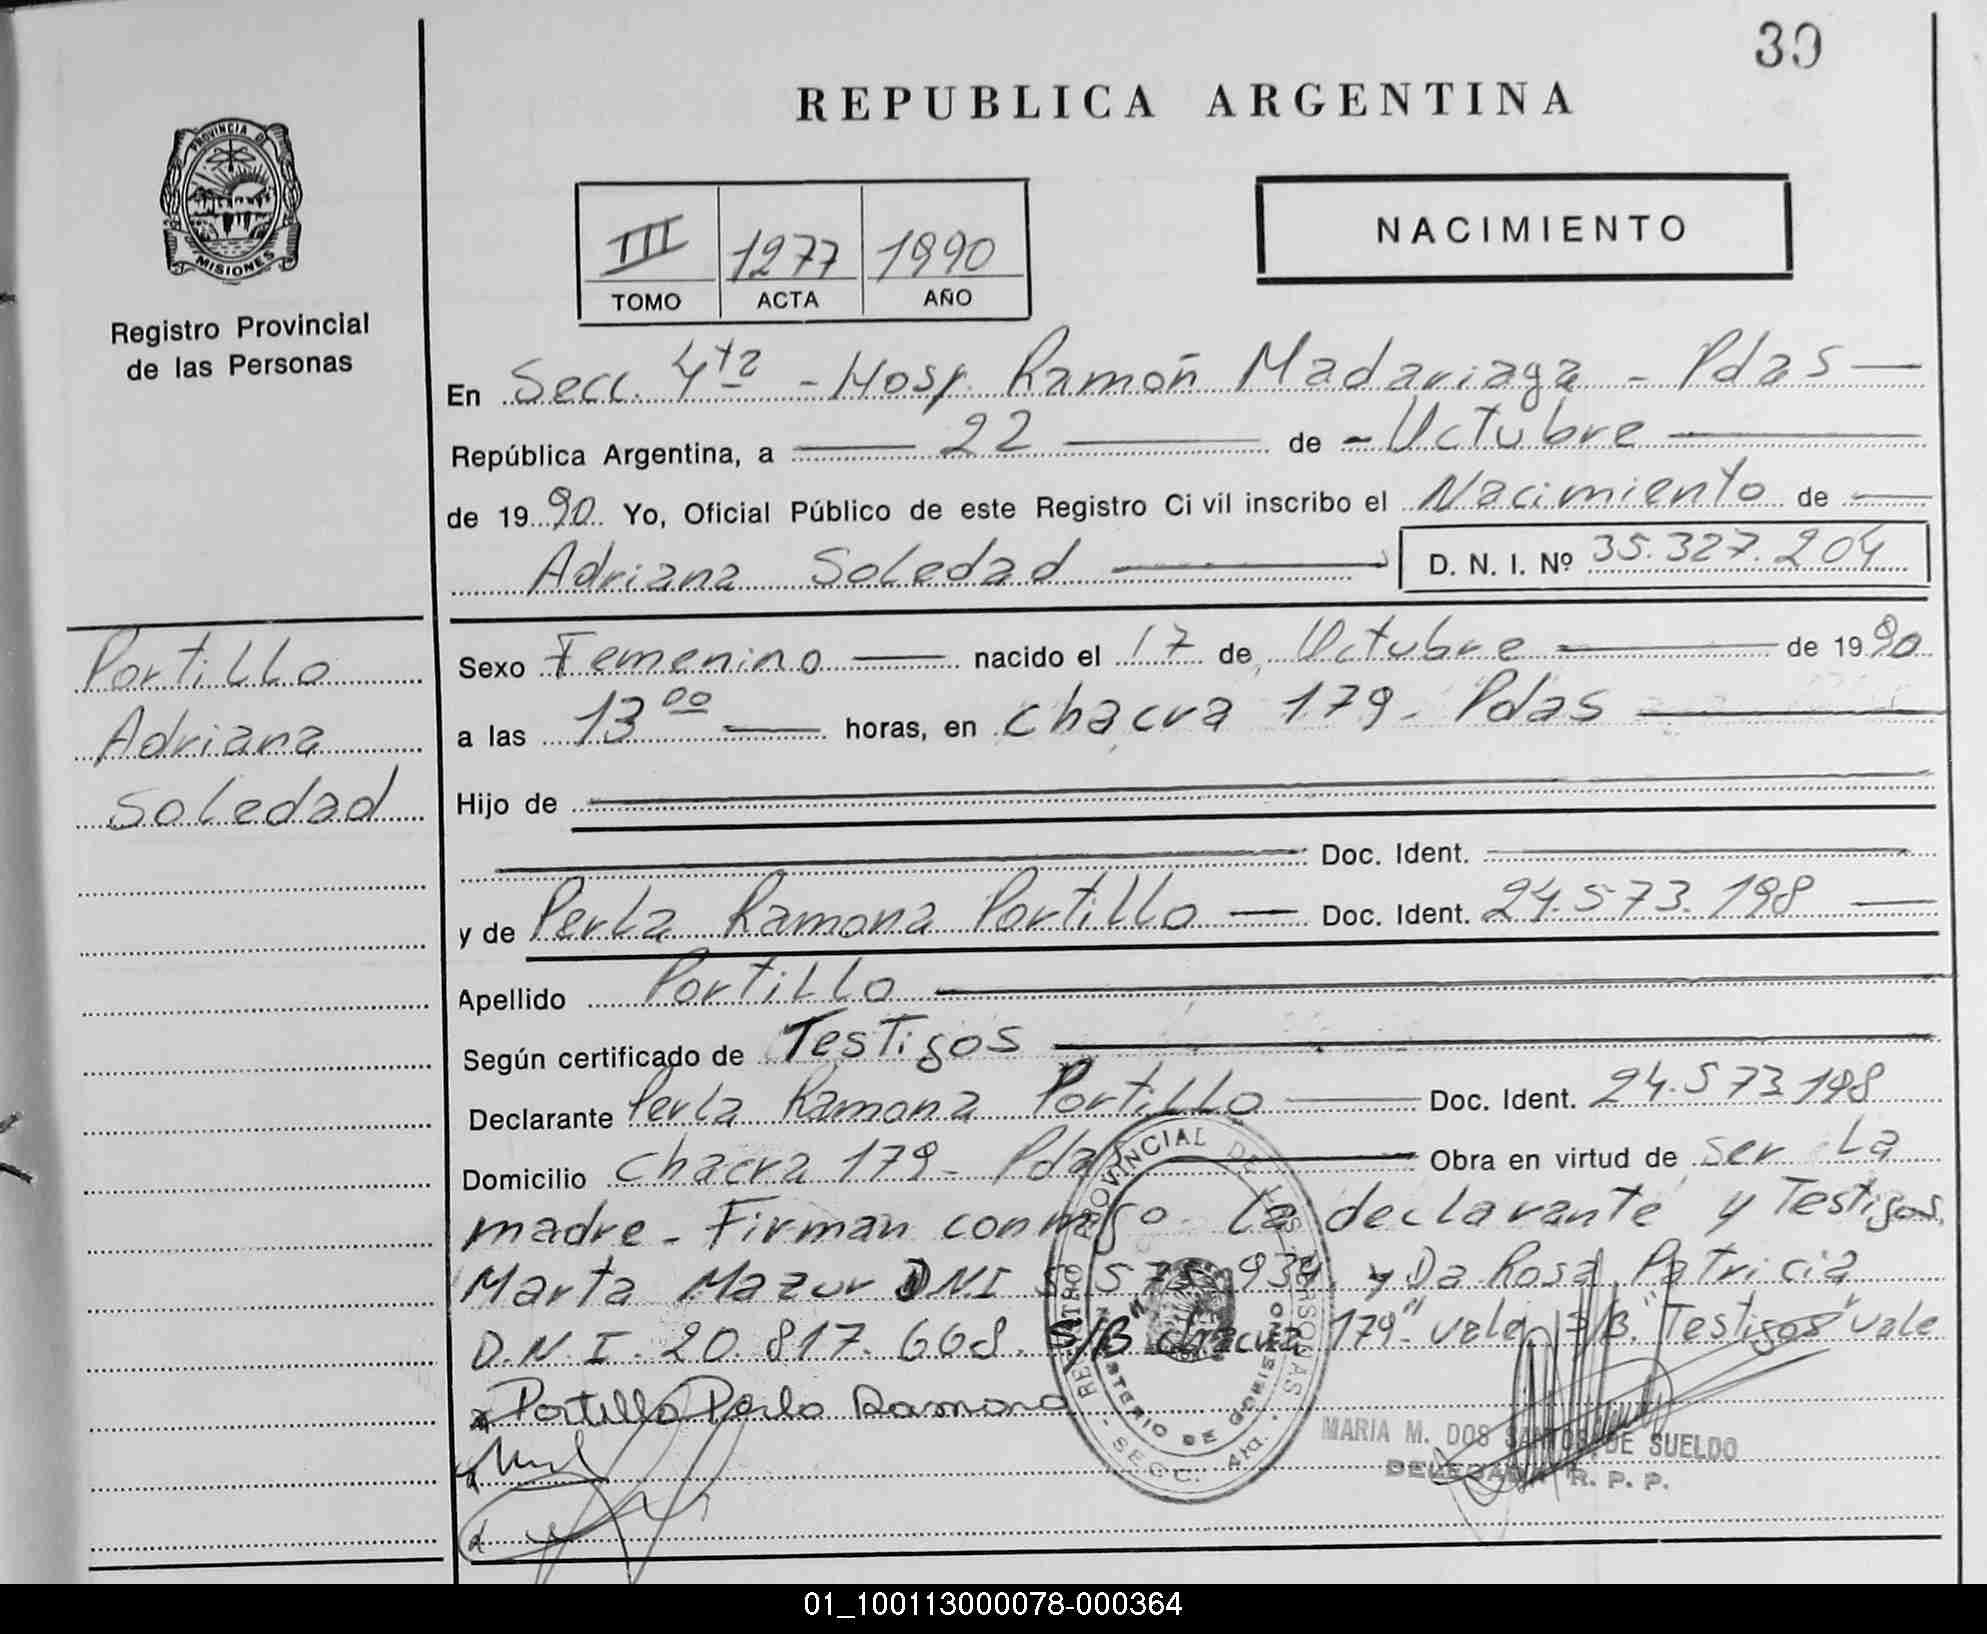 30
REPUBLICA ARGENTINA
PROVINCIA DE
MISIONES
Registro Provincial
de las Personas
III 1277 1990
TOMO ACTA AÑO
NACIMIENTO
En Secc. 4ta - Hosp. Ramón Madariaga - Pdas
República Argentina, a 22 de Octubre
de 1990. Yo, Oficial Público de este Registro Civil inscribo el Nacimiento de
Adriana Soledad D. N. I. Nº 35.327.204
Portillo
Adriana
Soledad
Sexo Femenino nacido el 17 de Octubre de 1990
a las 13 00 horas, en chacra 179 - Pdas
Hijo de
Doc. Ident.
y de Perla Ramona Portillo Doc. Ident. 24.573.198
Apellido Portillo
Según certificado de Testigos
Declarante Perla Ramona Portillo Doc. Ident. 24.573.198
Domicilio chacra 179 - Pdas Obra en virtud de ser la
madre - Firman conmigo la declarante y Testigos.
Marta Mazur DNI y Da Rosa Patricia
D.N.I. 20.817.668. S/B "chacra 179" vale S/B. "Testigos" vale
Portillo Perla Ramona
REGISTRO PROVINCIAL DE LAS PERSONAS
MINISTERIO DE GOBIERNO
- SECC. 4ta. -
MARIA M. DOS SANTOS DE SUELDO
DELEGADA R. P. P.
01_100113000078-000364